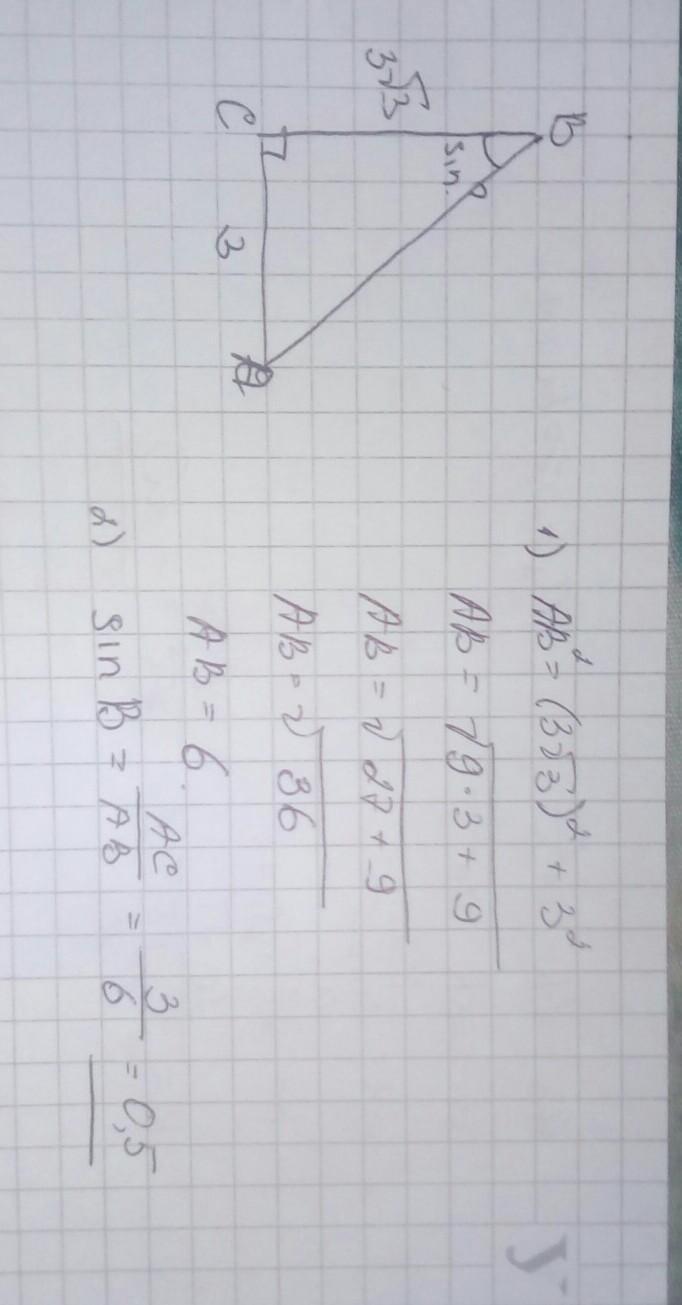 B
3√3
sin?
C
3
A
1) AB² = (3√3)² + 3²
AB = √9·3+9
AB = √27+9
AB = √36
AB = 6.
2) sin B = AC/AB = 3/6 = 0,5